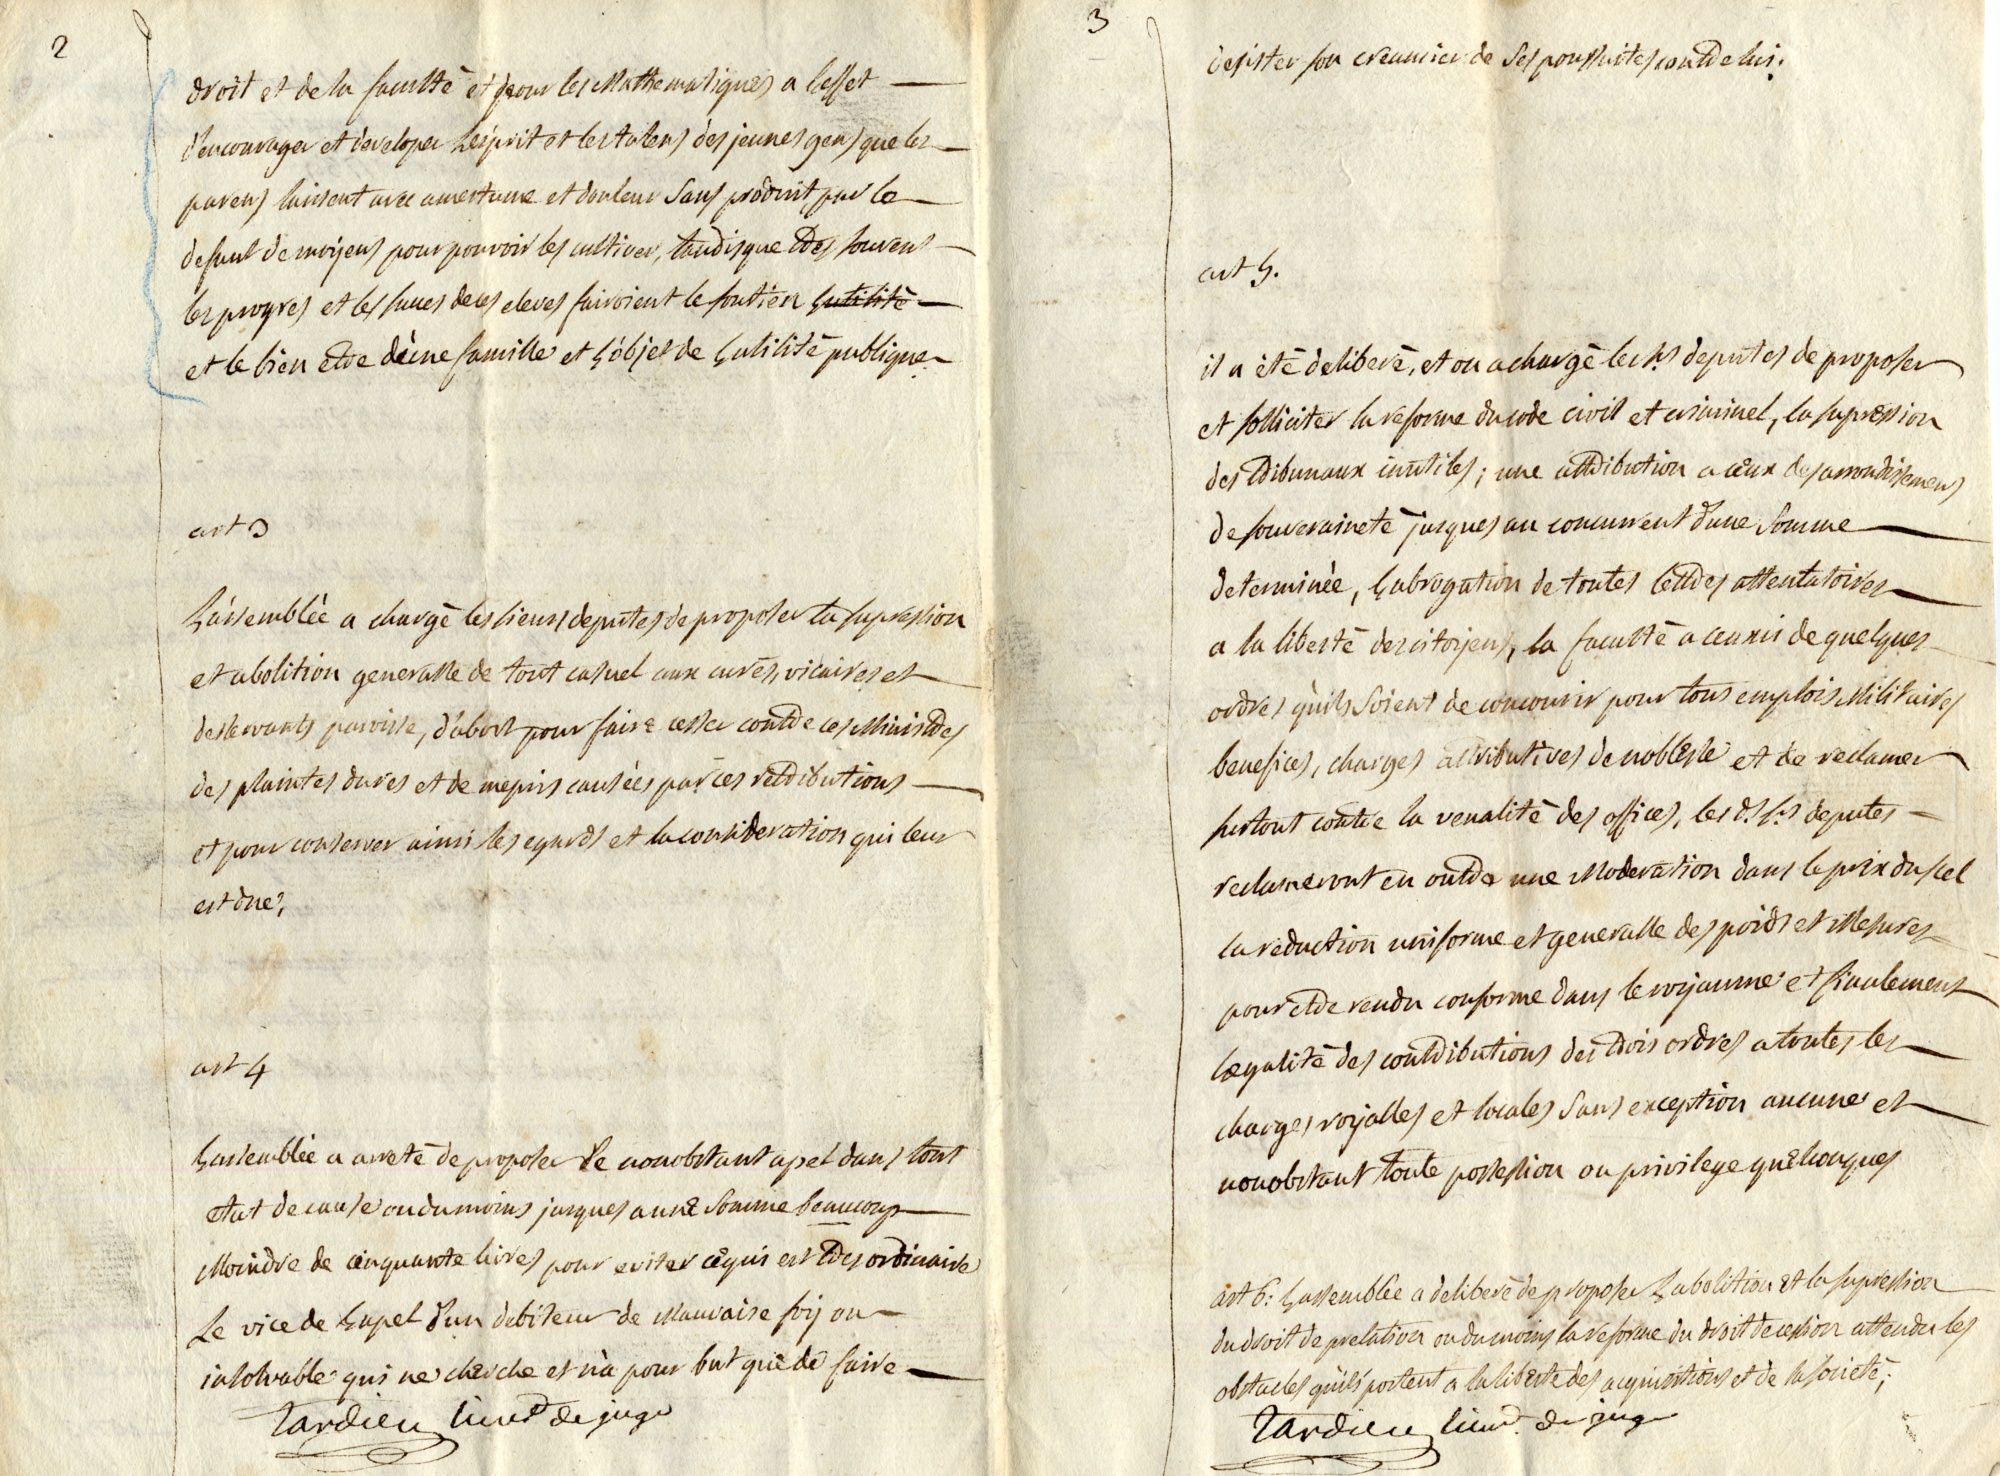 2
droit et de la faculté et pour les Mathematiques a l'effet
d'encourager et developer l'esprit et les talens des jeunes gens que les
parens laissent avec amertume et douleur sans produit par le
defaut de moijens pour pouvoir les cultiver, tandisque tres souvent
les progres et les succes de ces eleves fairoient le soutien l'utilité
et le bien etre d'une famille et l'objet de l'utilité publique
art 3
L'assemblée a chargé les sieurs deputes de proposer la supression
et abolition generalle de tout casuel aux curés, vicaires et
desservants paroisse, d'abort pour faire cesser contre ces Ministres
des plaintes dures et de mepris causées par ces retributions
et pour conserver ainsi les egards et la consideration qui leur
est due;
art 4
L'assemblée a arreté de proposer le nonobstant apel dans tout
etat de cause ou du moins jusques a une somme beaucoup
Moindre de cinquante livres pour eviter cequi est tres ordinaire
Le vice de l'apel d'un debiteur de Mauvaise foij ou
insolvable qui ne cherche et n'a pour but que de faire
Tardieu lieut de juge
3
desister son creancier de ses poursuites contre lui.
art 5.
il a été deliberé, et on a chargé les srs deputes de proposer
et solliciter la reforme du code civil et criminel, la supression
des tribunaux inutiles; une attribution a ceux des arrondissemens
de souveraineté jusques au concurrent d'une somme
determinée, l'abrogation de toutes lettres attentatoires
a la liberté des citoijens, la faculté a ceux de quelques
ordres qu'ils soient de concourir pour tous emplois Militaires
benefices, charges attributives de noblesse et de reclamer
surtout contre la venalité des offices, les ds srs deputes
reclameront en outre une Moderation dans le prix du sel
la reduction uniforme et generalle des poids et Mesures
pour etre rendu conforme dans le roijaume et finalement
l'egalité des contributions des trois ordres a toutes les
charges roijalles et locales sans exception aucune et
nonobstant toute possession ou privilege quelconques
art 6: L'assemblée a deliberé de proposer l'abolition et la supression
du droit de prelation ou du moins la reforme du droit de cession attendu les
obstacles qu'ils portent a la liberté des acquisitions et de la societé;
Tardieu lieut. de juge